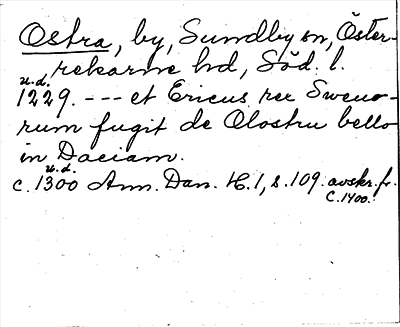 Olstra, by, Sundby sn, Öster-
rekarne hd, Söd. l.
u.d.
1229. --- et Ericus rex Sweno-
rum fugit de Olostru bello
in Daciam.
u.d.
c. 1300 Ann. Dan. H. 1, s. 109. avskr. fr.
c. 1400.